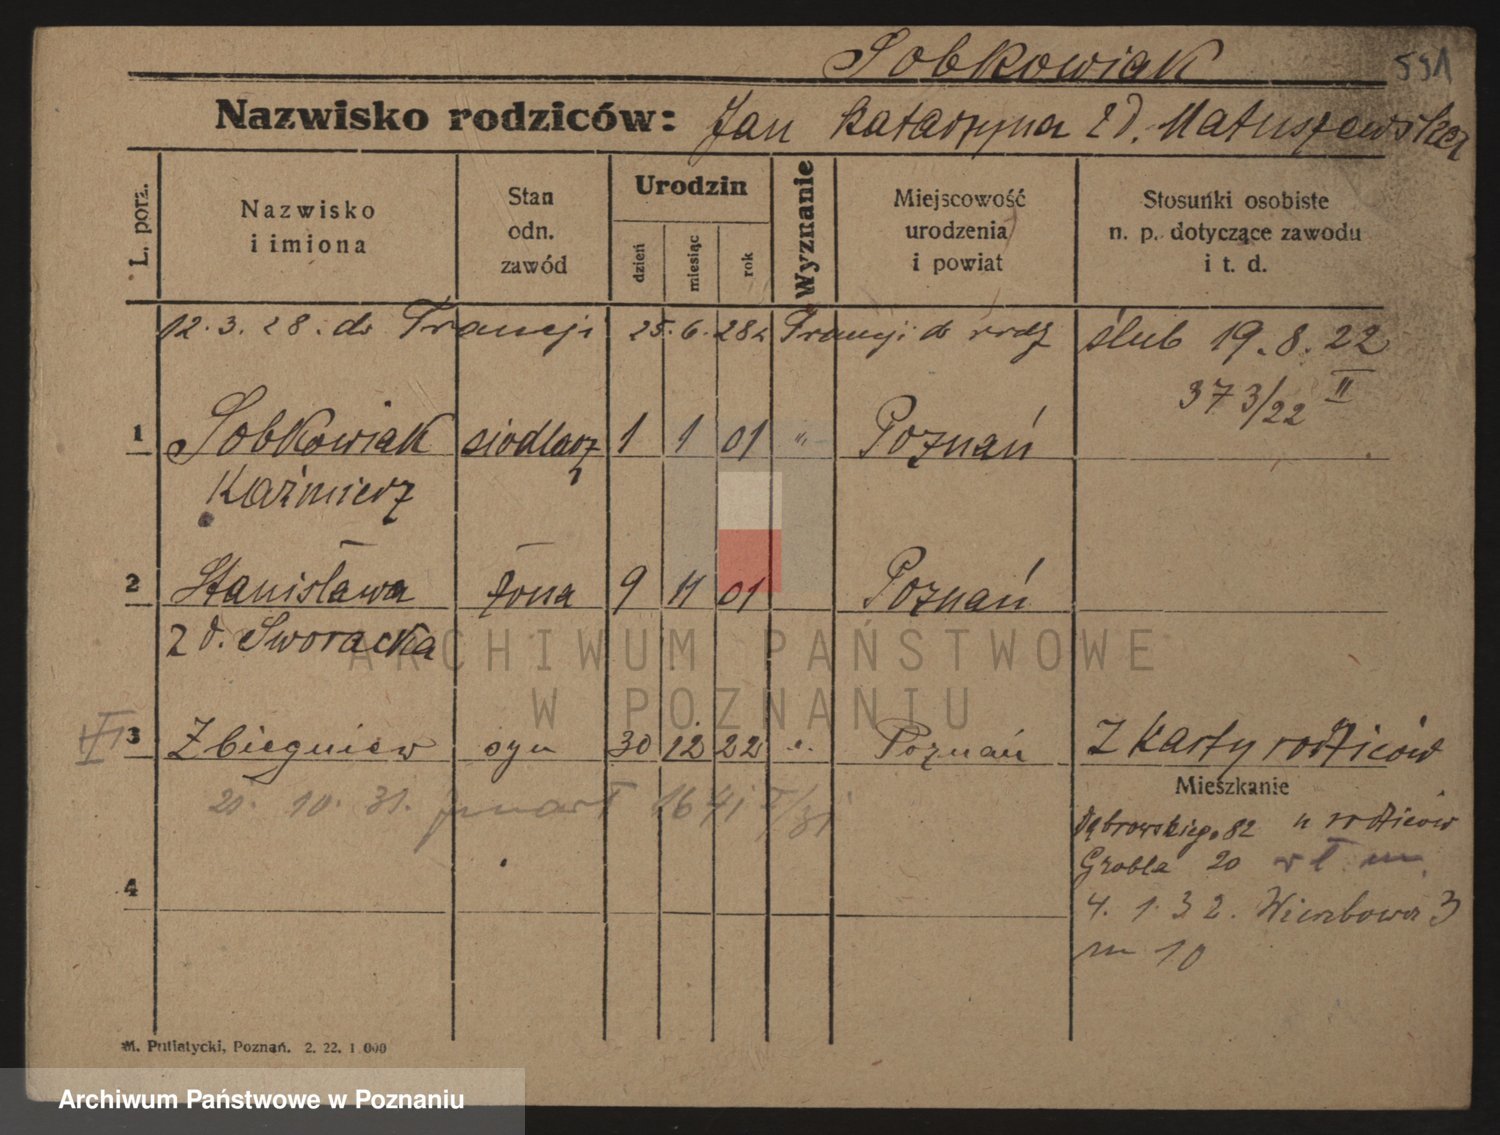 Sobkowiak
591
Nazwisko rodziców: Jan Katarzyna zd. Matuszewska
L. porz.
Nazwisko i imiona
Stan odn. zawód
Urodzin
dzień
miesiąc
rok
Wyznanie
Miejscowość urodzenia i powiat
Stosunki osobiste n. p. dotyczące zawodu i t. d.
12. 3. 28. do Francji 25. 6. 28 z Francji do rodz ślub 19. 8. 22
373/22 II
1 Sobkowiak siodlarz 1 1 01 " Poznań
Kaźmierz
2 Stanisława żona 9 11 01 Poznań
zd. Sworacka
VI 3 Zbiegniew syn 30 12 22 " Poznań z karty rodziców
Mieszkanie
10. 31. zmarł 1641
Dąbrowskiego 82 u rodziców
Grobla 20 wł m.
4
4. 1. 32. Wierzbowa 3
m 10
M. Putiatycki, Poznań. 2. 22. 1 000
ARCHIWUM PAŃSTWOWE
W POZNANIU
Archiwum Państwowe w Poznaniu